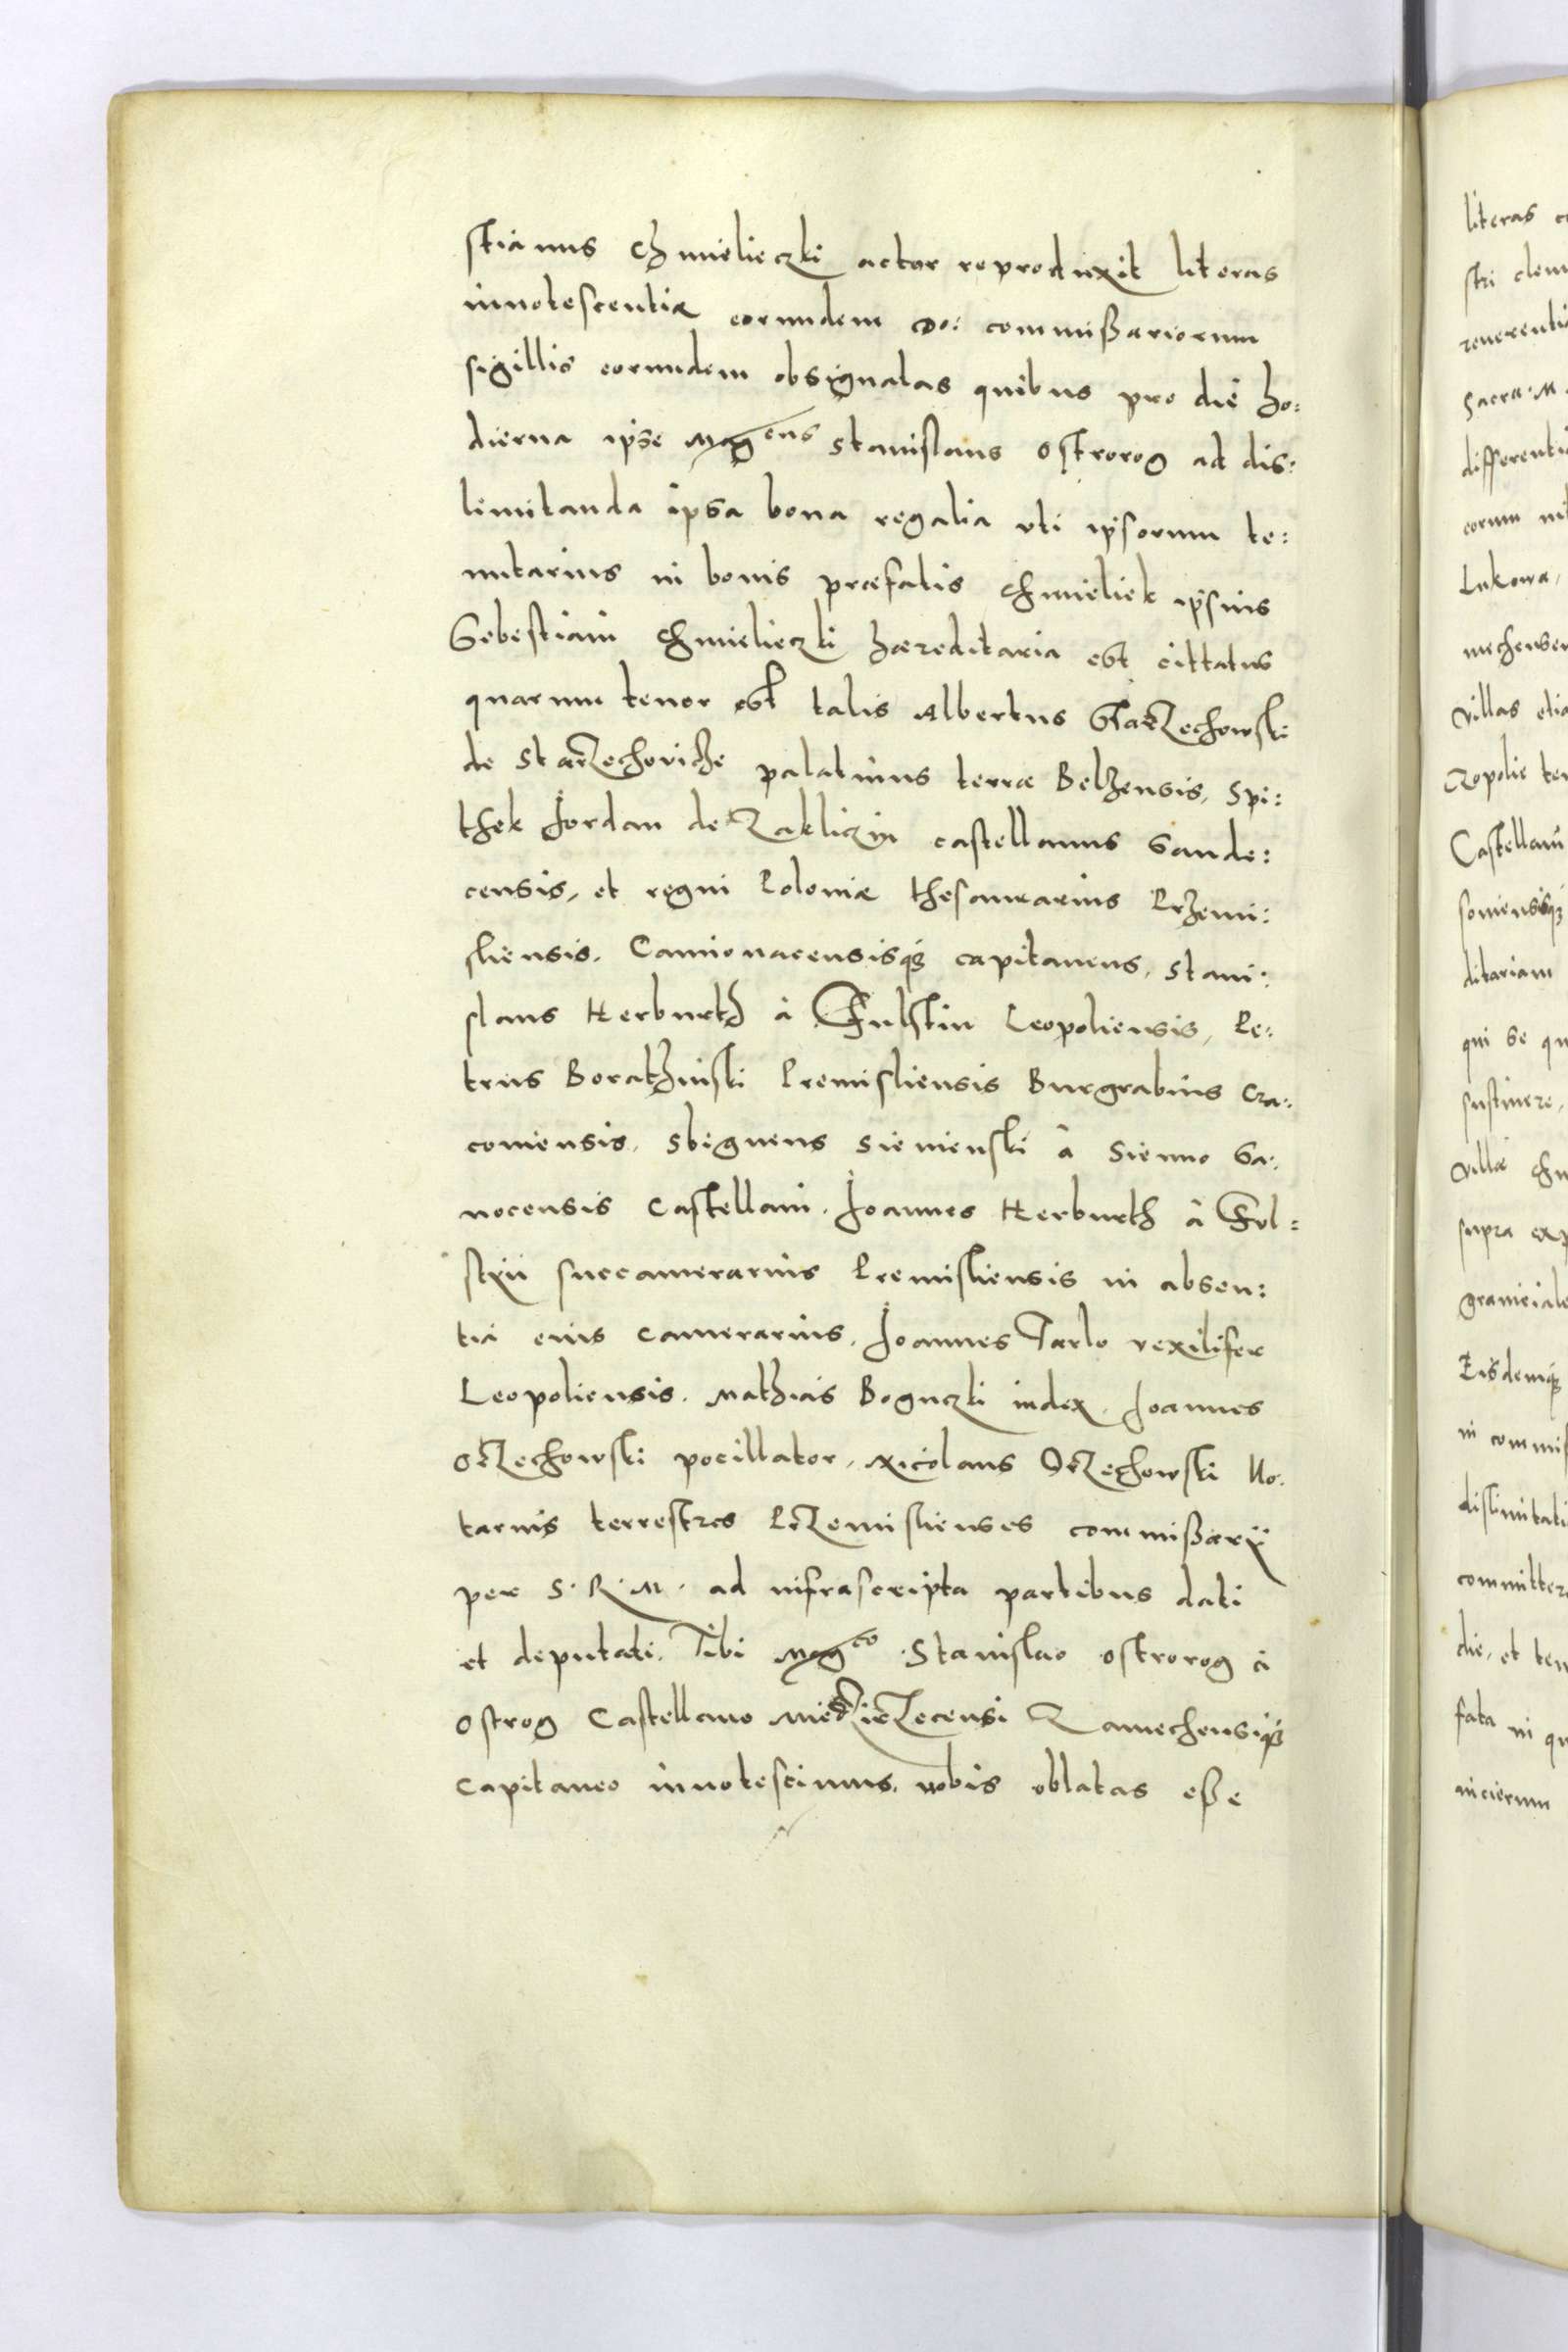 stianus Chmielieczki actor reproduxit literas
innotescentiæ eorundem do: commißariorum
sigillis eorundem obsignatas quibus pro die ho:
dierna ipse Mag cus Stanislaus Ostrorog ad dis:
limitanda ipsa bona regalia uti ipsorum te:
nutarius in bonis præfatis Chmieliek ipsius
Sebestiani Chmielieczki hæreditaria est cittatus
quarum tenor est talis Albertus Starzechowski
de Starzechoviche palatinus terræ Belzensis, Spi:
thek Jordan de Zakliczin castellanus Sande:
censis, et regni Poloniæ thesaurarius Przemi:
sliensis. Camionacensisq3 capitaneus, Stani:
slaus Herburth à Fulstin Leopoliensis, Pe:
trus Borathinski Premisliensis Burgrabius Cra:
coviensis, Sbigneus Sienienski à Sienno Sa:
nocensis Castellani. Joannes Herburth à Ful=
stin succamerarius Premisliensis in absen:
tia eius Camerarius. Joannes Tarlo vexilifer
Leopoliensis. Mathias Boguczki iudex. Joannes
Orzechowski pocillator, Nicolaus Orzechowski No.
tarius terrestres Przemislienses commißarij
per S. R. M. ad infrascripta partibus dati
et deputati. Tibi Mag co Stanislao Ostrorog à
Ostrog Castellano Miedzirzecensi Zamechensiq3
Capitaneo innotescimus, nobis oblatas eße
literas
stri clem
reverenti
Sacra. M.
differenti
eorum
Lukowa,
mechensen
villas etia
ropolie ten
Castellanū
ditariam
qui se qu
sustinere,
villæ Ch
supra exp
graniciale
Eisdemq3
in commis
dislimitati
committer
die, et ten
fata in qu